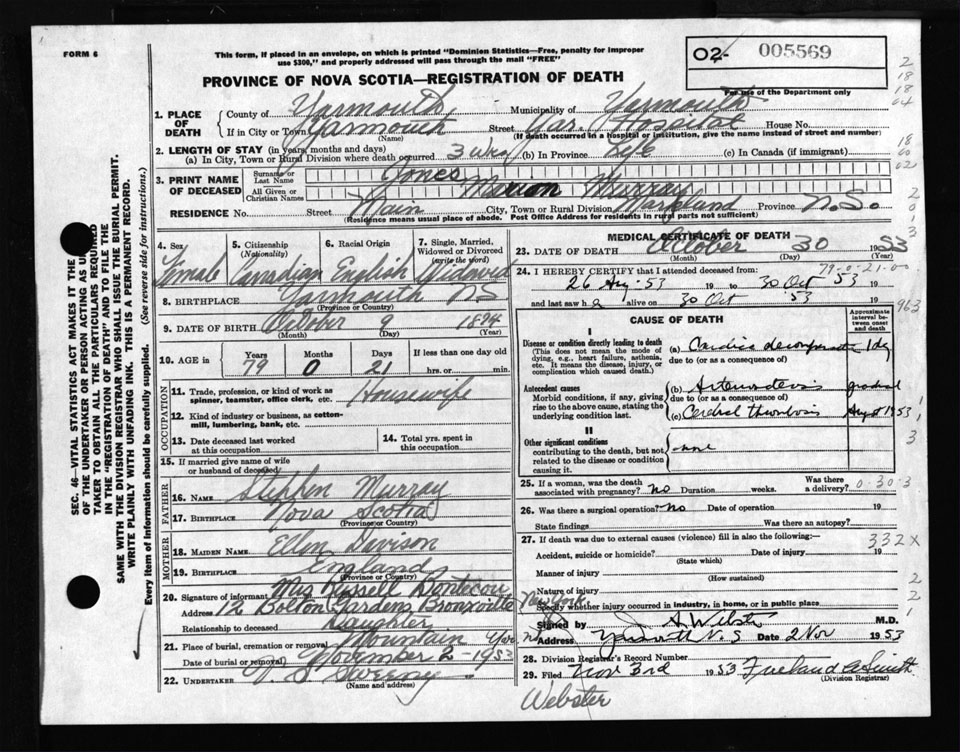 FORM 6
This form, if placed in an envelope, on which is printed "Dominion Statistics—Free, penalty for improper
use $300," and properly addressed will pass through the mail "FREE"
02- 005569
For use of the Department only
PROVINCE OF NOVA SCOTIA—REGISTRATION OF DEATH
1. PLACE OF DEATH
County of Yarmouth Municipality of Yarmouth
If in City or Town Yarmouth Street Yar. Hospital House No.
(Name) (If death occurred in a hospital or institution, give the name instead of street and number)
2. LENGTH OF STAY (in years, months and days)
(a) In City, Town or Rural Division where death occurred 3 wks (b) In Province Life (c) In Canada (if immigrant)
3. PRINT NAME OF DECEASED
Surname or Last Name Jones
All Given or Christian Names Marion Murray
RESIDENCE No. Street Main City, Town or Rural Division Maryland Province N.S.
(Residence means usual place of abode. Post Office Address for residents in rural parts not sufficient)
4. Sex Female
5. Citizenship (Nationality) Canadian
6. Racial Origin English
7. Single, Married, Widowed or Divorced (write the word) Widowed
8. BIRTHPLACE Yarmouth NS
(Province or Country)
9. DATE OF BIRTH October 9 1874
(Month) (Day) (Year)
10. AGE in Years 79 Months 0 Days 21 If less than one day old
hrs. or min.
OCCUPATION
11. Trade, profession, or kind of work as spinner, teamster, office clerk, etc. Housewife
12. Kind of industry or business, as cotton-mill, lumbering, bank, etc.
13. Date deceased last worked at this occupation
14. Total yrs. spent in this occupation
15. If married give name of wife or husband of deceased
FATHER
16. NAME Stephen Murray
17. BIRTHPLACE Nova Scotia
(Province or Country)
MOTHER
18. MAIDEN NAME Ellen Davison
19. BIRTHPLACE England
(Province or Country)
20. Signature of informant Mrs Russell Bontecou
Address 12 Bolton Gardens Bronxville New York
Relationship to deceased Daughter
21. Place of burial, cremation or removal Mountain
Date of burial or removal November 2 - 1953
22. UNDERTAKER V S Sweeny
(Name and address)
MEDICAL CERTIFICATE OF DEATH
23. DATE OF DEATH October 30 1953
(Month) (Day)
79-0-21-0
24. I HEREBY CERTIFY that I attended deceased from:
26 Aug. 53 19 to 30 Oct 53 19
and last saw h alive on 30 Oct '53 19
CAUSE OF DEATH
Approximate interval between onset and death
I
Disease or condition directly leading to death
(This does not mean the mode of dying, e.g., heart failure, asthenia, etc. It means the disease, injury, or complication which caused death.)
(a) Cardiac decompensation 1 day
due to (or as a consequence of)
Antecedent causes
Morbid conditions, if any, giving rise to the above cause, stating the underlying condition last.
(b) gradual
due to (or as a consequence of)
(c) Cerebral thrombosis August 1953
II
Other significant conditions
contributing to the death, but not related to the disease or condition causing it.
none
25. If a woman, was the death associated with pregnancy? no Duration weeks. Was there a delivery?
26. Was there a surgical operation? no Date of operation 19
State findings Was there an autopsy?
27. If death was due to external causes (violence) fill in also the following:— 332X
Accident, suicide or homicide? Date of injury 19
(State which)
Manner of injury
(How sustained)
Nature of injury
Specify whether injury occurred in industry, in home, or in public place
Signed by Webster M.D.
Address Yarmouth N.S Date 2 Nov 1953
28. Division Registrar's Record Number
29. Filed Nov 3rd 1953 Freeland Smith
(Division Registrar)
Webster
SEC. 46—VITAL STATISTICS ACT MAKES IT THE
OF THE UNDERTAKER OR PERSON ACTING AS
TAKER TO OBTAIN ALL THE PARTICULARS REQUIRED
IN THE "REGISTRATION OF DEATH" AND TO FILE THE
SAME WITH THE DIVISION REGISTRAR WHO SHALL ISSUE THE BURIAL PERMIT.
WRITE PLAINLY WITH UNFADING INK. THIS IS A PERMANENT RECORD.
Every item of information should be carefully supplied. (See reverse side for instructions.)